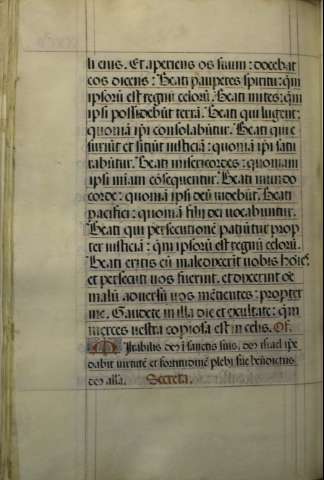 li eius. Et aperiens os suum: docebat
eos dicens: Beati pauperes spiritu: qm̄
ipsorū est regnū celorū. Beati mites: qm̄
ipsi possidebūt terrā. Beati qui lugent:
quoniā ip̄i consolabūtur. Beati qui e
suriūt et sitiūt iusticiā: quoniā ip̄i satu
rabūtur. Beati misericordes: quoniam
ipsi m̄iam cōsequentur. Beati mundo
corde: quoniā ipsi deū videbūt. Beati
pacifici: quoniā filij dei vocabuntur.
Beati qui persecutionē patiūtur prop
ter iusticiā: qm̄ ipsorū est regnū celorū.
Beati eritis cū maledixerit vobis hoīes
et persecuti vos fuerint. et dixerint oē
malū adversū vos mētientes: propter
me. Gaudete in illa die et exultate: qm̄
merces vestra copiosa est in celis. Of.
Mirabilis deꝰ ī sanctis suis. deꝰ isr̄ael ip̄e
dabit virtutē et fortitudinē plebi sue bn̄dictus
deꝰ alla. Secreta.